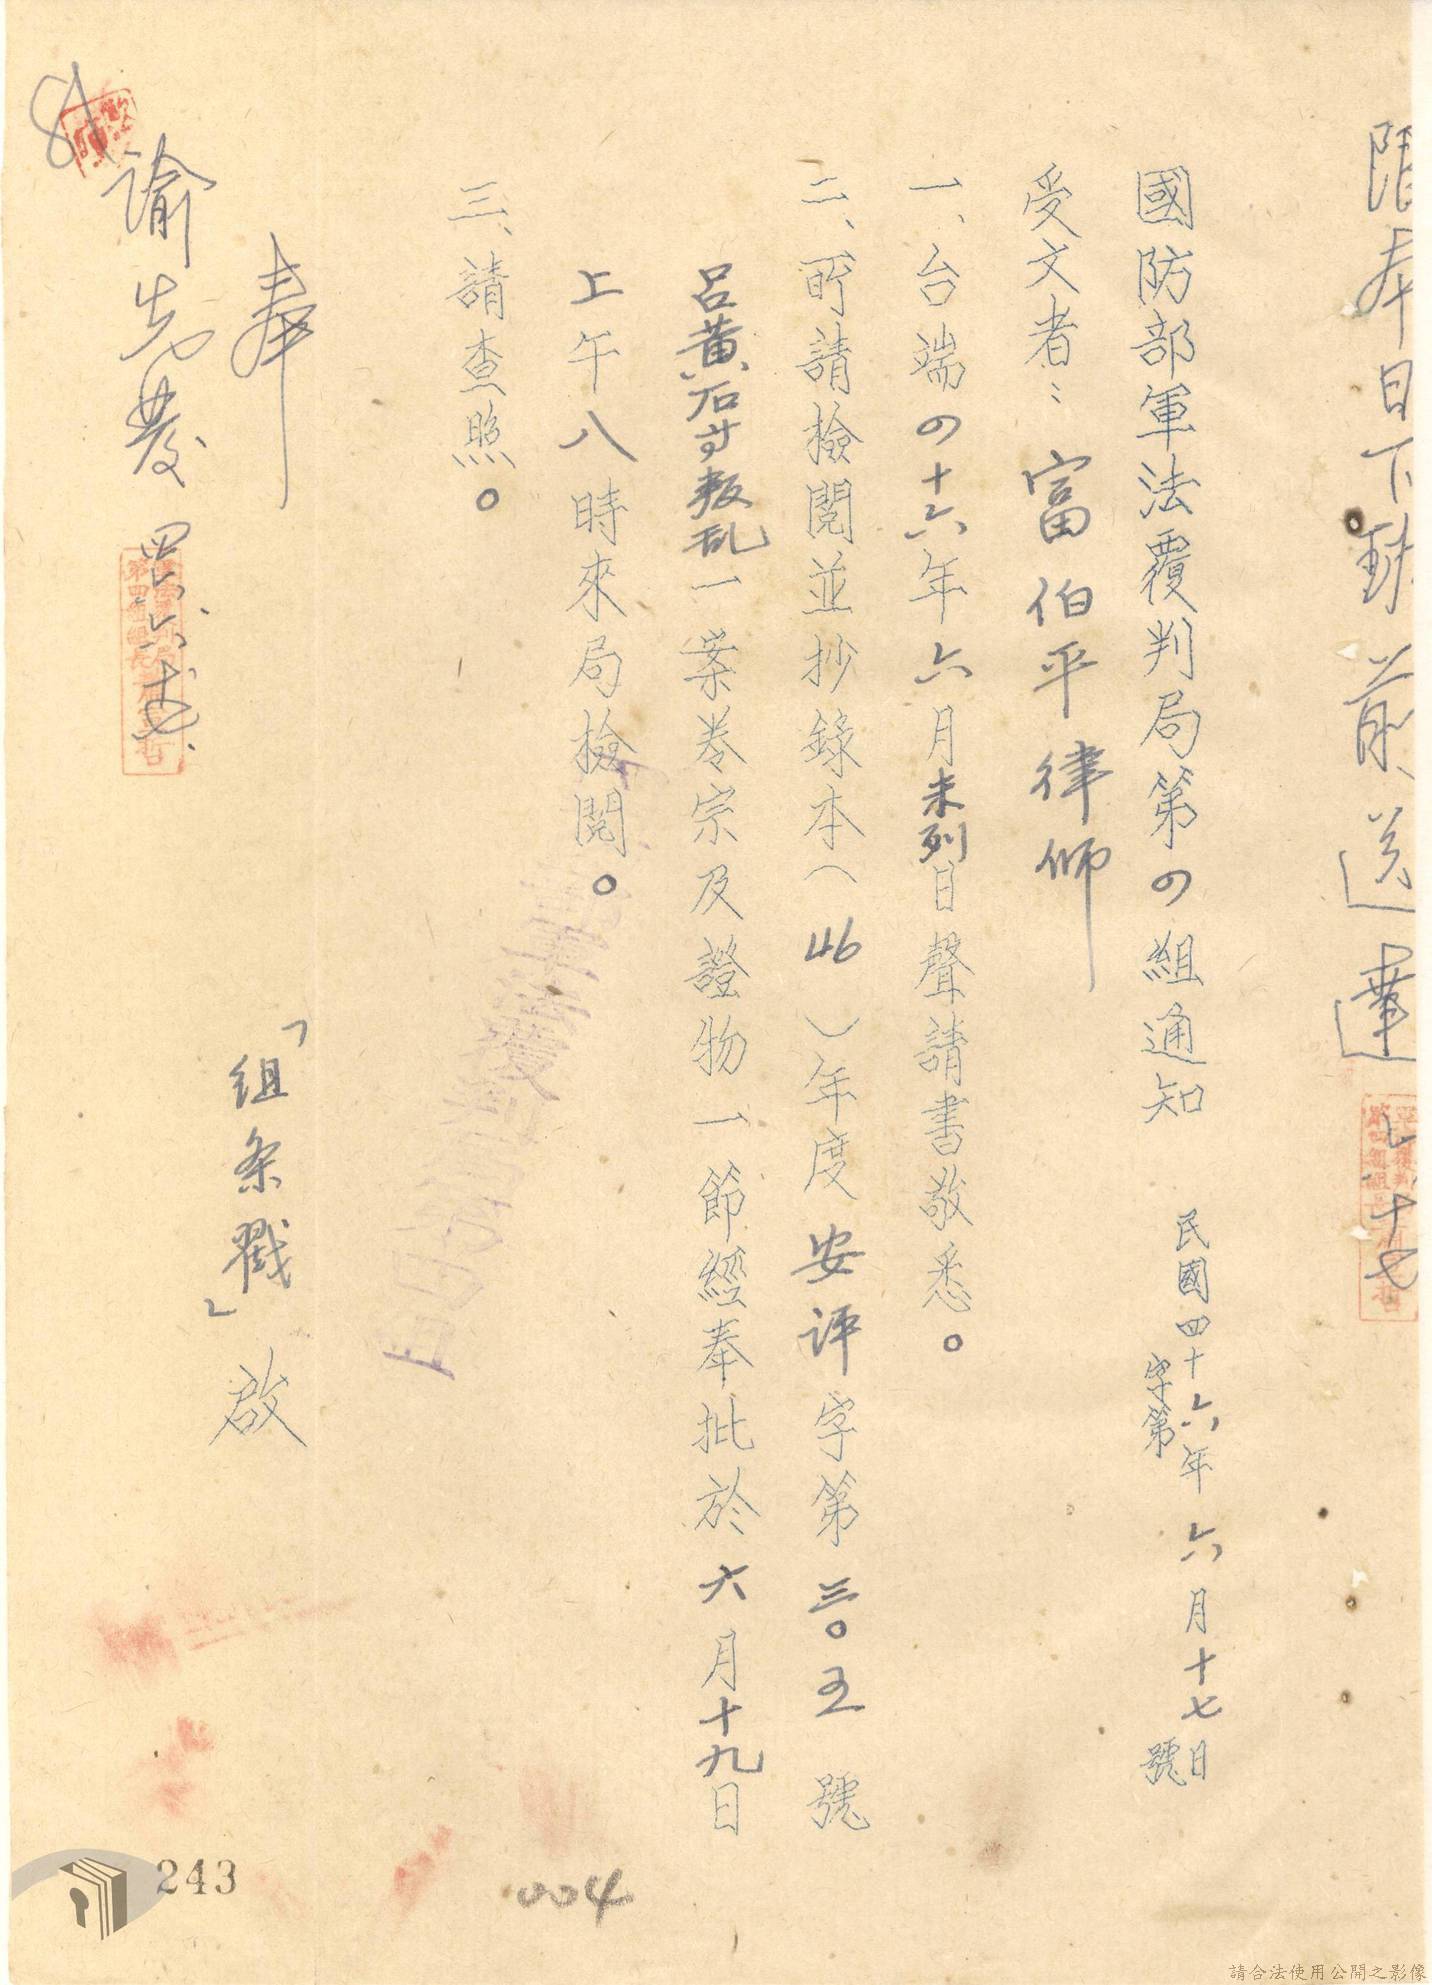 限本日下班前送達
六、十七
國防部軍法覆判局第四組通知
民國四十六年六月十七日
字第 號
受文者：富伯平律師
一、台端四十六年六月未列日聲請書敬悉。
二、所請檢閱並抄錄本（46）年度安評字第三〇五號
呂黃石等叛乱一案卷宗及證物一節經奉批於六月十九日
上午八時來局檢閱。
三、請查照。
「組条戳」啟
奉
諭先發
81
243
004
請合法使用公開之影像